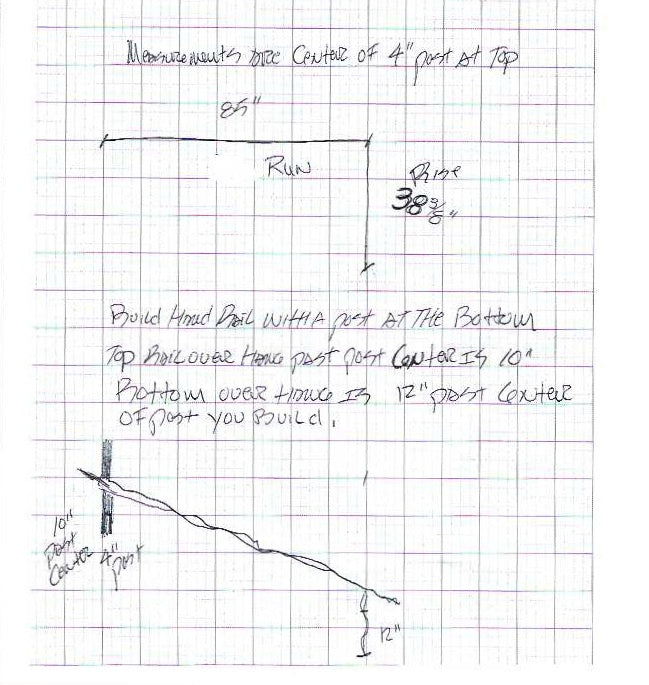 Measurements are Center of 4" post At Top
85"
Run
Rise
38 3/8"
Build Hand Rail with A post AT THE Bottom
Top Rail over Hang past post Center Is 10"
Bottom over Hang Is 12" past Center
OF post you Build.
10"
past
Center
4"
post
12"